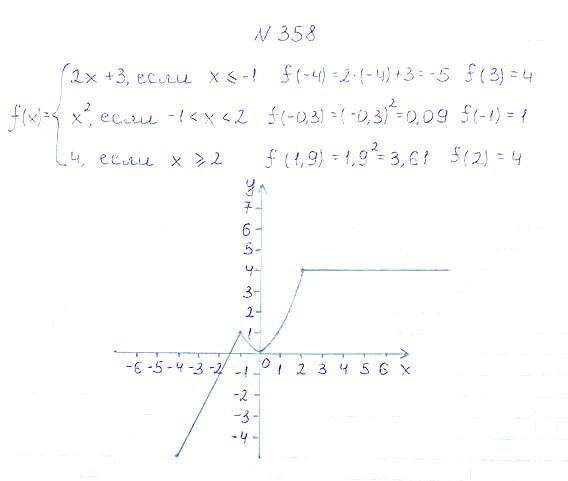 N 358
2x + 3, если x ≤ -1 f(-4) = 2·(-4)+3 = -5 f(3) = 4
f(x)= x², если -1 < x < 2 f(-0,3) = (-0,3)² = 0,09 f(-1) = 1
4, если x ⩾ 2 f(1,9) = 1,9² = 3,61 f(2) = 4
y
7
6
5
4
3
2
1
-6 -5 -4 -3 -2 -1 0 1 2 3 4 5 6 x
-2
-3
-4